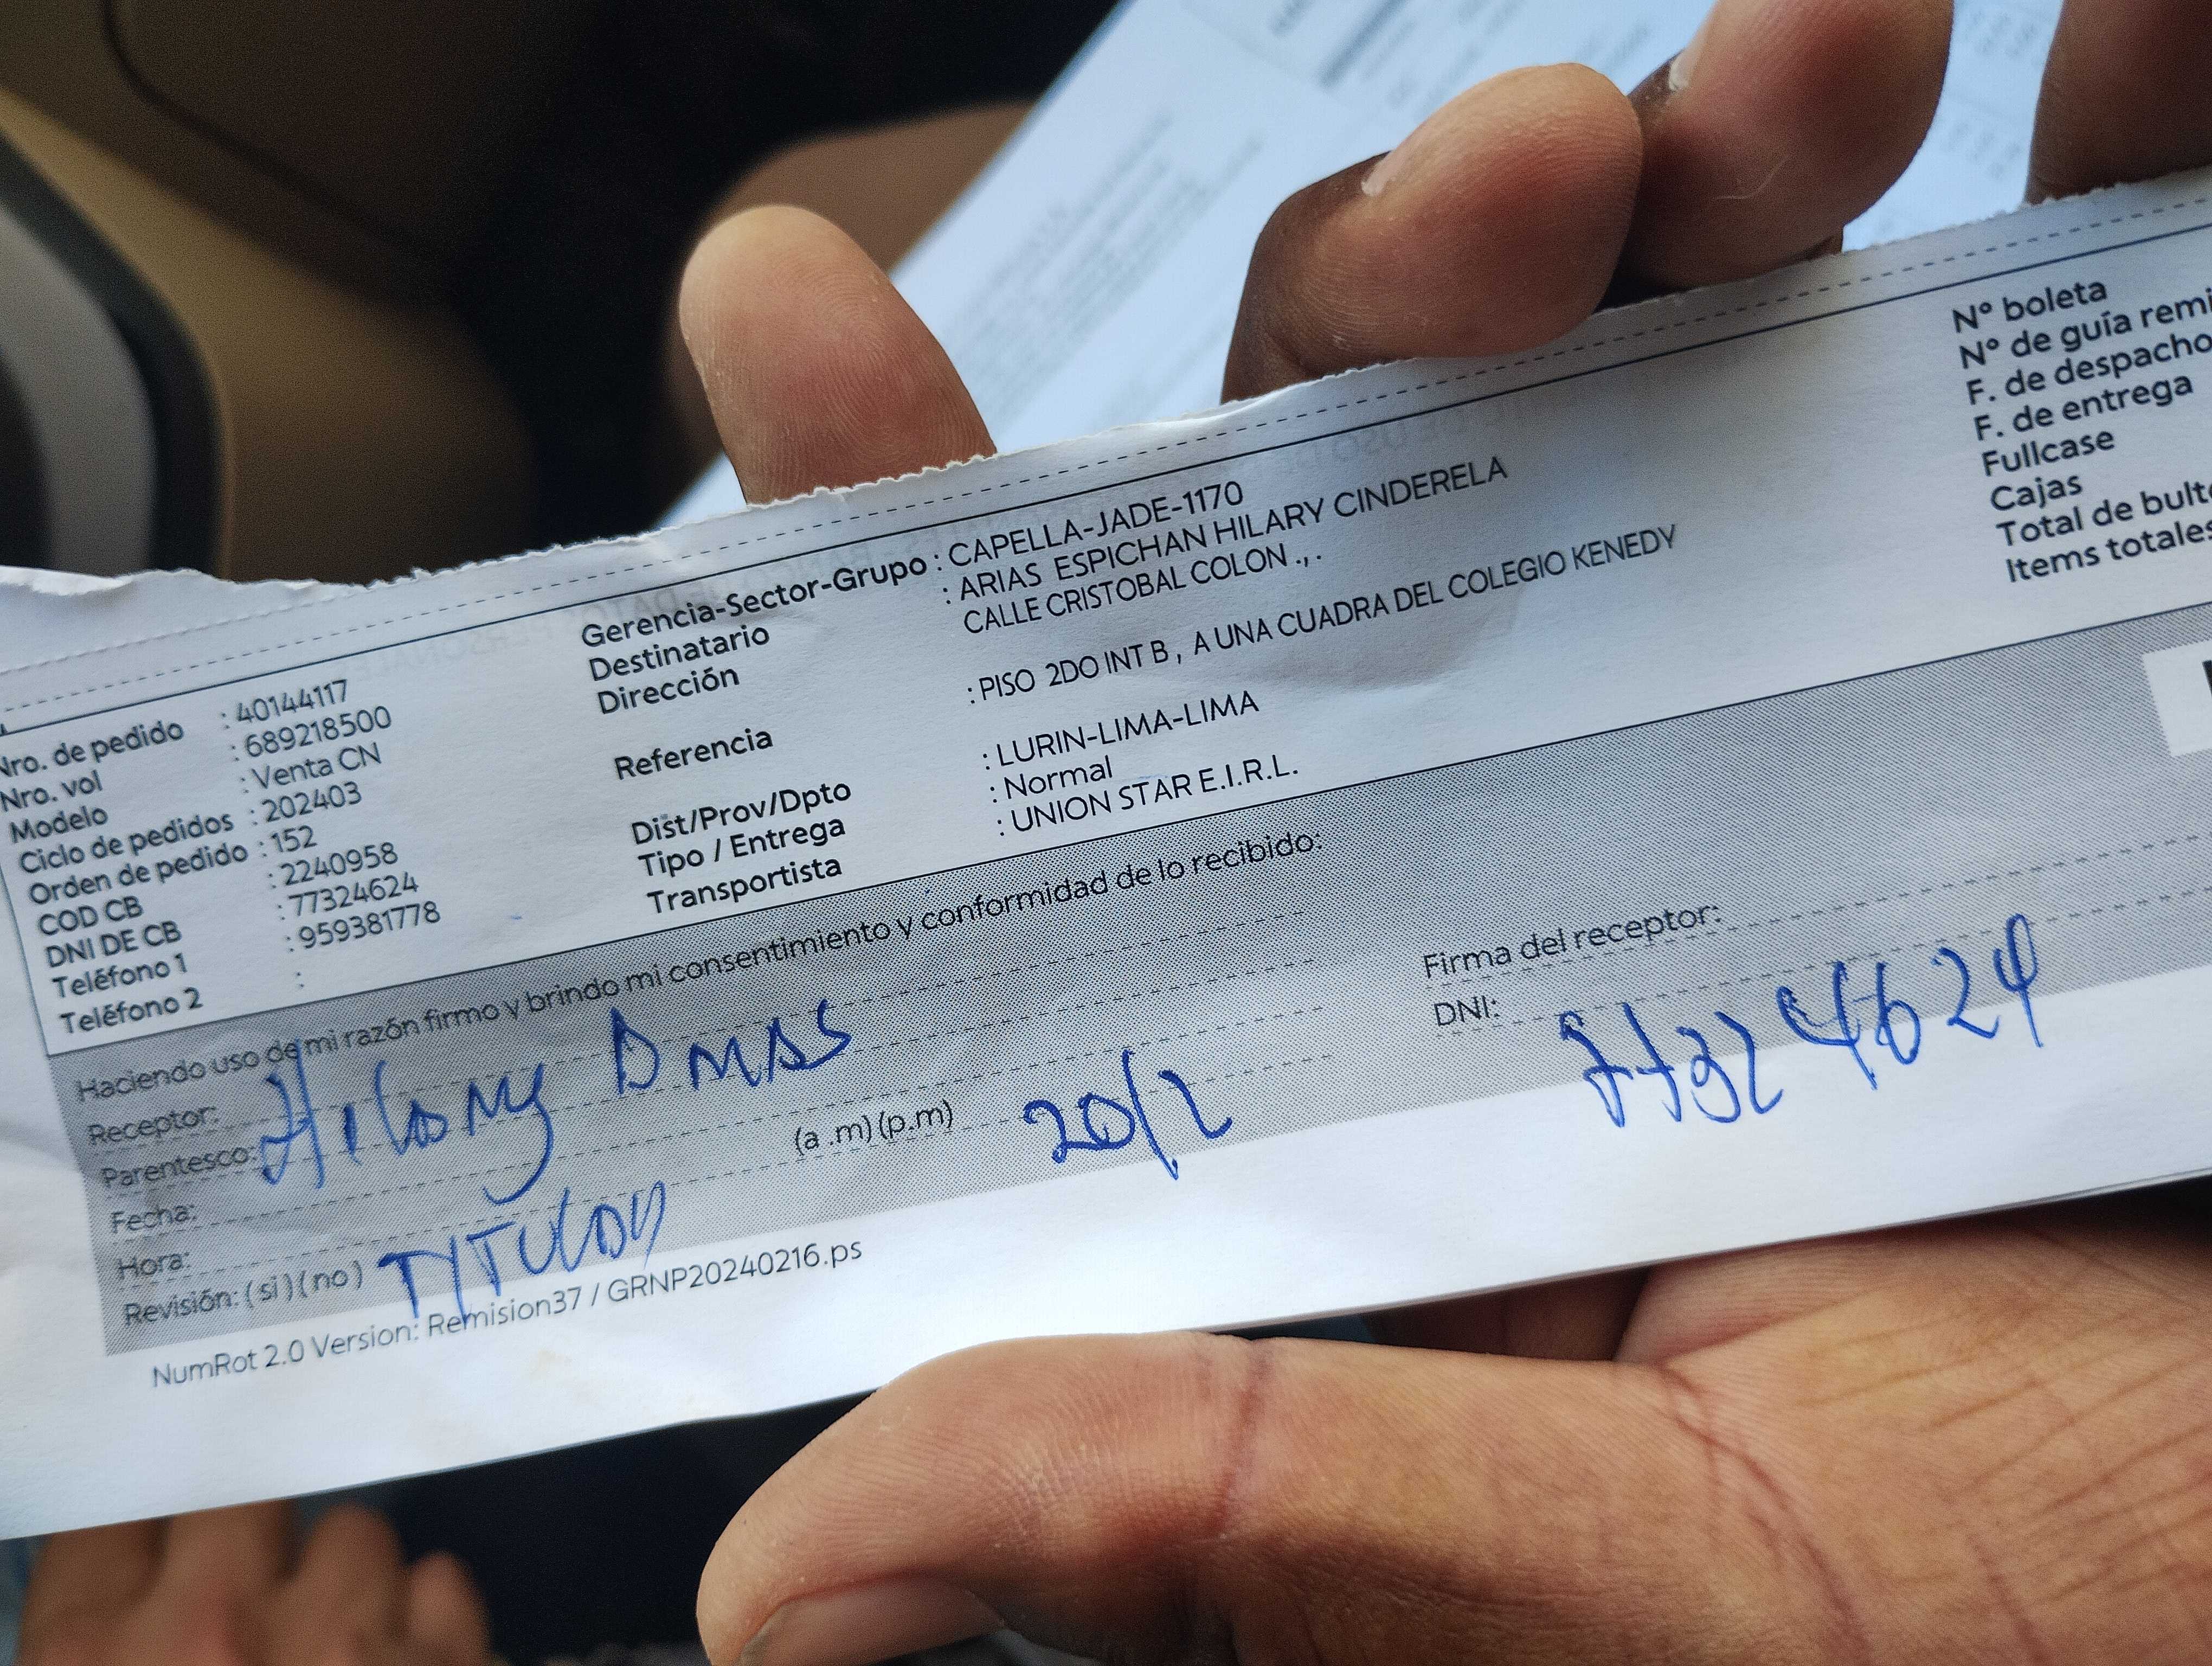 Nro. de pedido : 40144117
Nro. vol : 689218500
Modelo : Venta CN
Ciclo de pedidos : 202403
Orden de pedido : 152
COD CB : 2240958
DNI DE CB : 77324624
Teléfono 1 : 959381778
Teléfono 2 :
Gerencia-Sector-Grupo : CAPELLA-JADE-1170
Destinatario : ARIAS ESPICHAN HILARY CINDERELA
Dirección CALLE CRISTOBAL COLON . , .
Referencia : PISO 2DO INT B , A UNA CUADRA DEL COLEGIO KENEDY
Dist/Prov/Dpto : LURIN-LIMA-LIMA
Tipo / Entrega : Normal
Transportista : UNION STAR E.I.R.L.
N° boleta
N° de guía remi
F. de despacho
F. de entrega
Fullcase
Cajas
Total de bult
Items totales
Haciendo uso de mi razón firmo y brindo mi consentimiento y conformidad de lo recibido:
Receptor:
Parentesco:
Fecha: 20/2
Hora: (a .m) (p.m)
Revisión: ( si ) ( no )
Firma del receptor:
DNI: 77324624
NumRot 2.0 Version: Remision37 / GRNP20240216.ps